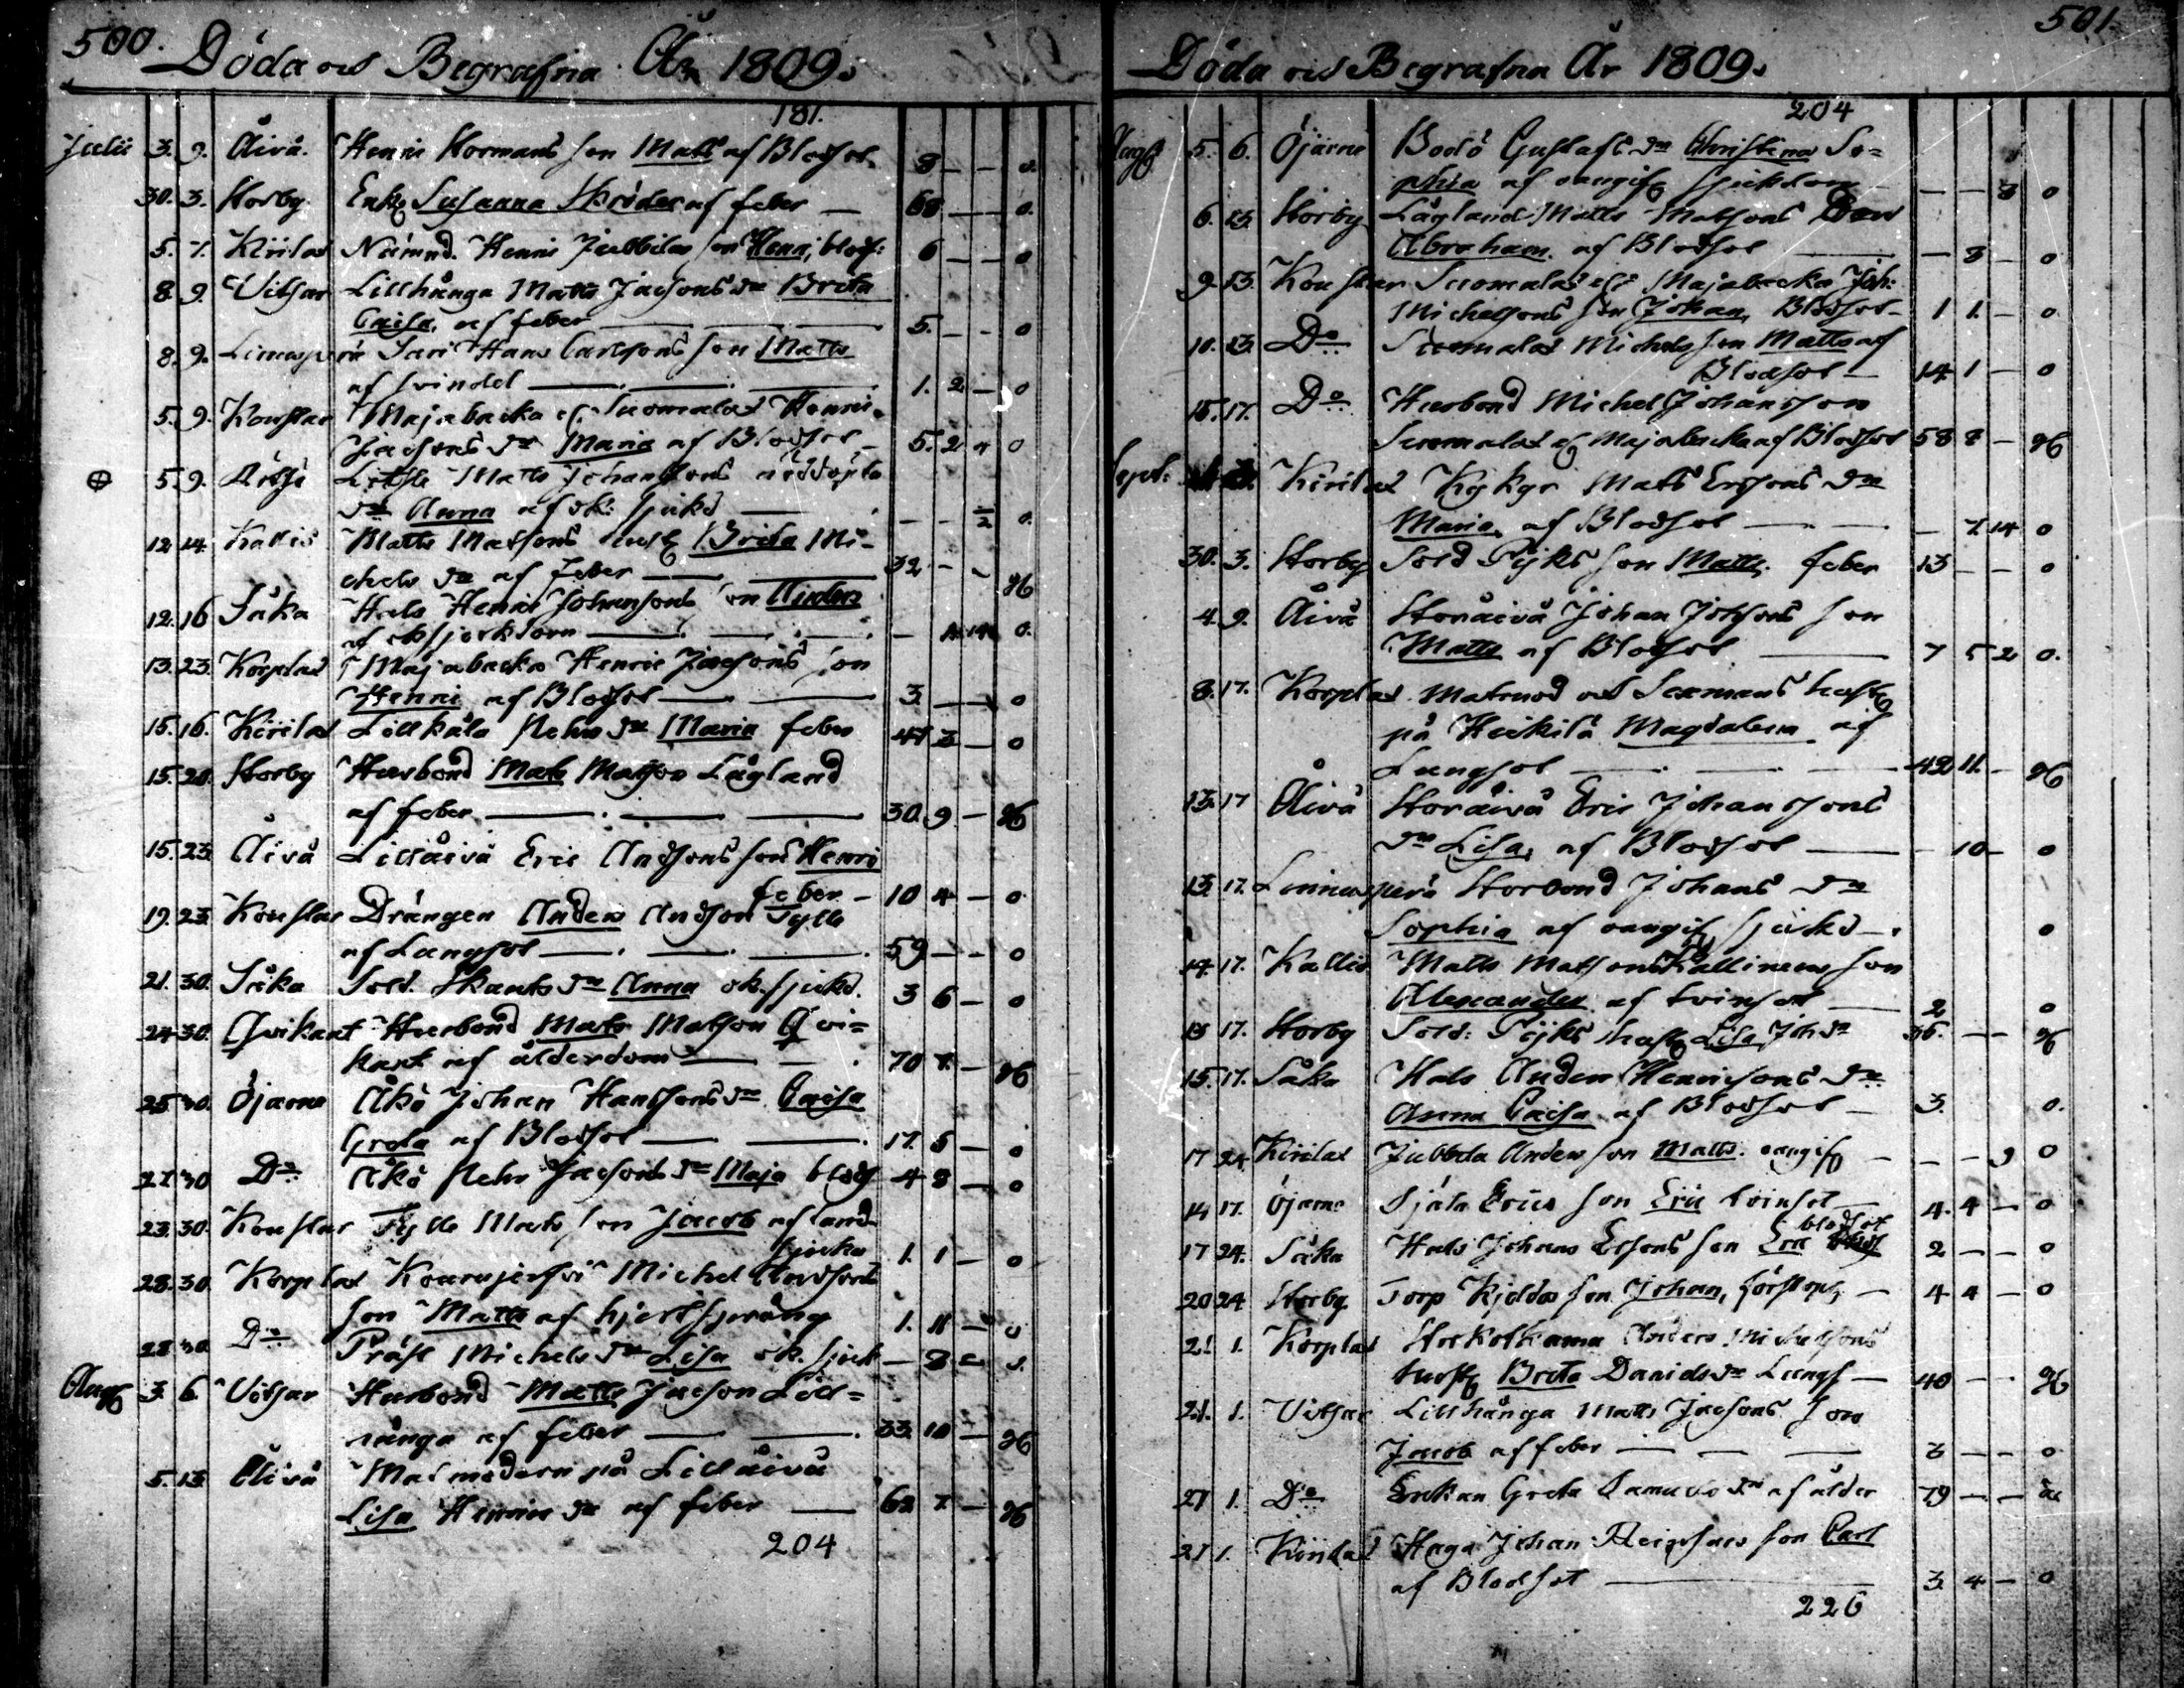 500.
Döda och Begrafna År 1809.
181.
Julii 3. 9. Åivå. Henric Normans son Matts af Blodsot. 8 — — 0.
30. 3. Storby Enk. Susanna Skröder af feber — 60 — — 0.
5. 7. Kirilax Nämnd. Henric Jubbilas son Henr; blods: 6 — — 0
8 9. Vitsar Lillhånga Matts Jacsons dr Brita
Caisa, af feber — 5. — — 0
8. 9. Hans Carlsons son Matts
af svindel — 1. 2 — 0
5. 9. Majabacka el. Suomalax Henric
Jacsons dr Maria af Blodsot — 5. 2 " 0
5 9. Matts Johansons nöddöpta
dr Anna af ok: sjukd — — — ½ 0.
12 14. Kallis Matts Matsons hust. Brita Mi-
chels dr af feber — 32 — — 26
12. 16 Såka Hals Henric Johansons son Anders
af ok sjuckdom — 0.
13. 23. Korplax Majabacka Henric Jacsons son
Henric af Blodsot — 3. — — 0
15. 16. Kirilax Lillkåla Mehr dr Maria feber 47 3 — 0
15. 20. Storby Husbond Mats Matson Lågland
af feber — 30. 9 — 26
15. 23. Åivå Lillåivå Eric Andsons son Henric
feber — 10 4 — 0
19. 23. Konstar Drängen Anders Andson Tylle
af Lungsot — 59 — — 0
21. 30. Såka Sold. Skants dr Anna ok. sjukd. 3 6 — 0
24 30. Qvikant Husbond Mats Matson Qvi-
kant af ålderdom — 70 7. — 26
25 30. Öjarne Åkö Johan Hansons dr Caisa
Greta af Blodsot — 17. 5 — 0
27. 30 Do Åkö Mehr Jacsons dr Maja blods 4 8 — 0
23. 30. Konstar Tylle Mats son Jacob af tand-
sjuka 1. 1 — 0
28. 30 Korplax Michel Andsons
son Matts af hjertsprång 1. 11 — 0
28 30. Do Präst Michels dr Lisa ok. sjuk — 8 — 0.
Aug. 3. 6. Vitsar Husbond Matts Jacson Lill-
hånga af feber — 33. 10 — 26
5. 13. Åivå Matmodern på Lillåivå
Lisa Henrics dr af feber — 62 7. — 26
204
501.
Döda och Begrafna År 1809.
204
Aug 5. 6. Öjarne Bodö Gustafs dr Christina So-
phia af oangif. sjukdom — — 8 0
6. 13. Storby Lågland Matts Matsons son
Abraham. af Blodsot — — 8 — 0
9. 13. Konstar Suomalax el. Majabacka Joh:
Michelsons son Johan, Blodsot — 1 1. — 0
10. 13. Do Suomalax Michels son Matts af
Blodsot — 14 1 — 0
15. 17. Do Husbond Michel Johansson
Suomalax el. Majabacka af Blodsot 58 8 — 26
Sept. Kirilax Kykyr Mats Ersons dr
Maria, af Blodsot — — 7 14 0
30. 3. Storby Sold Pijks son Matts. feber 13 — — 0
4. 9. Åivå Storåivå Johan Johsons son
Matts af Blodsot — 7 5 2 0.
8. 17. Korplax Matmod och Sexmans hust.
på Heikilä Magdalena af
Lungsot — 42 11. — 26
13. 17 Åivå Storåivå Eric Johanssons
dr Lisa, af Blodsot — 10 — 0
13. 17. Storbond Johans dr
Sophia af oangif. sjukd — 0
14. 17. Kallis Matts Matsons Kallinens son
Alexander af tvinsot — 2 0
15 17. Storby Sold: Pijks hust. Lisa Joh dr 36. — — 26
15. 17. Såka Hals Anders Henricsons dr
Anna Caisa af Blodsot — 3. 0.
17 24. Kirilax Jubbila Anders son Matts. oangif. — — — 9 0
14 17. Öjarne Själa Erics son Eric tvinsot — 4. 4 — 0
17 24. Såka Hals Johans Ersons son Eric blodsot 2 — — 0
20 24 Storby Torp Kjeldos son Johan, förstopp, — 4 4 — 0
21 1. Korplax Storkotkama Anders Michelsons
hust. Brita Davids dr Lungs — 40 — — 26
21. 1. Vitsar Lillhånga Matts Jacsons son
Jacob af feber — 3 — — 0
21 1. Do Enkan Greta Samuels dr af ålder 79 — —
21 1. Kirilax Haga Johan son Carl
af Blodsot — 3. 4 — 0
226